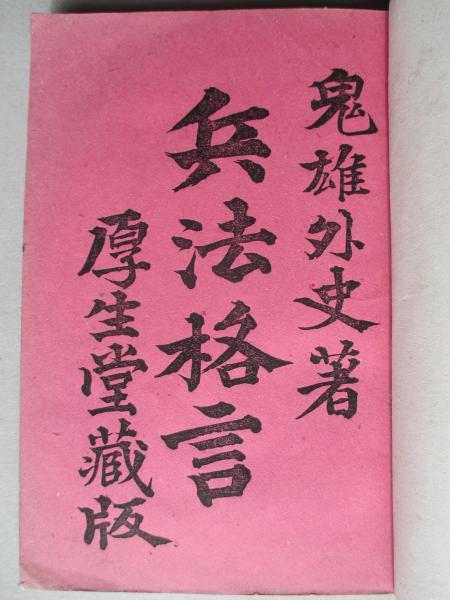 鬼雄外史著
兵法格言
厚生堂藏版